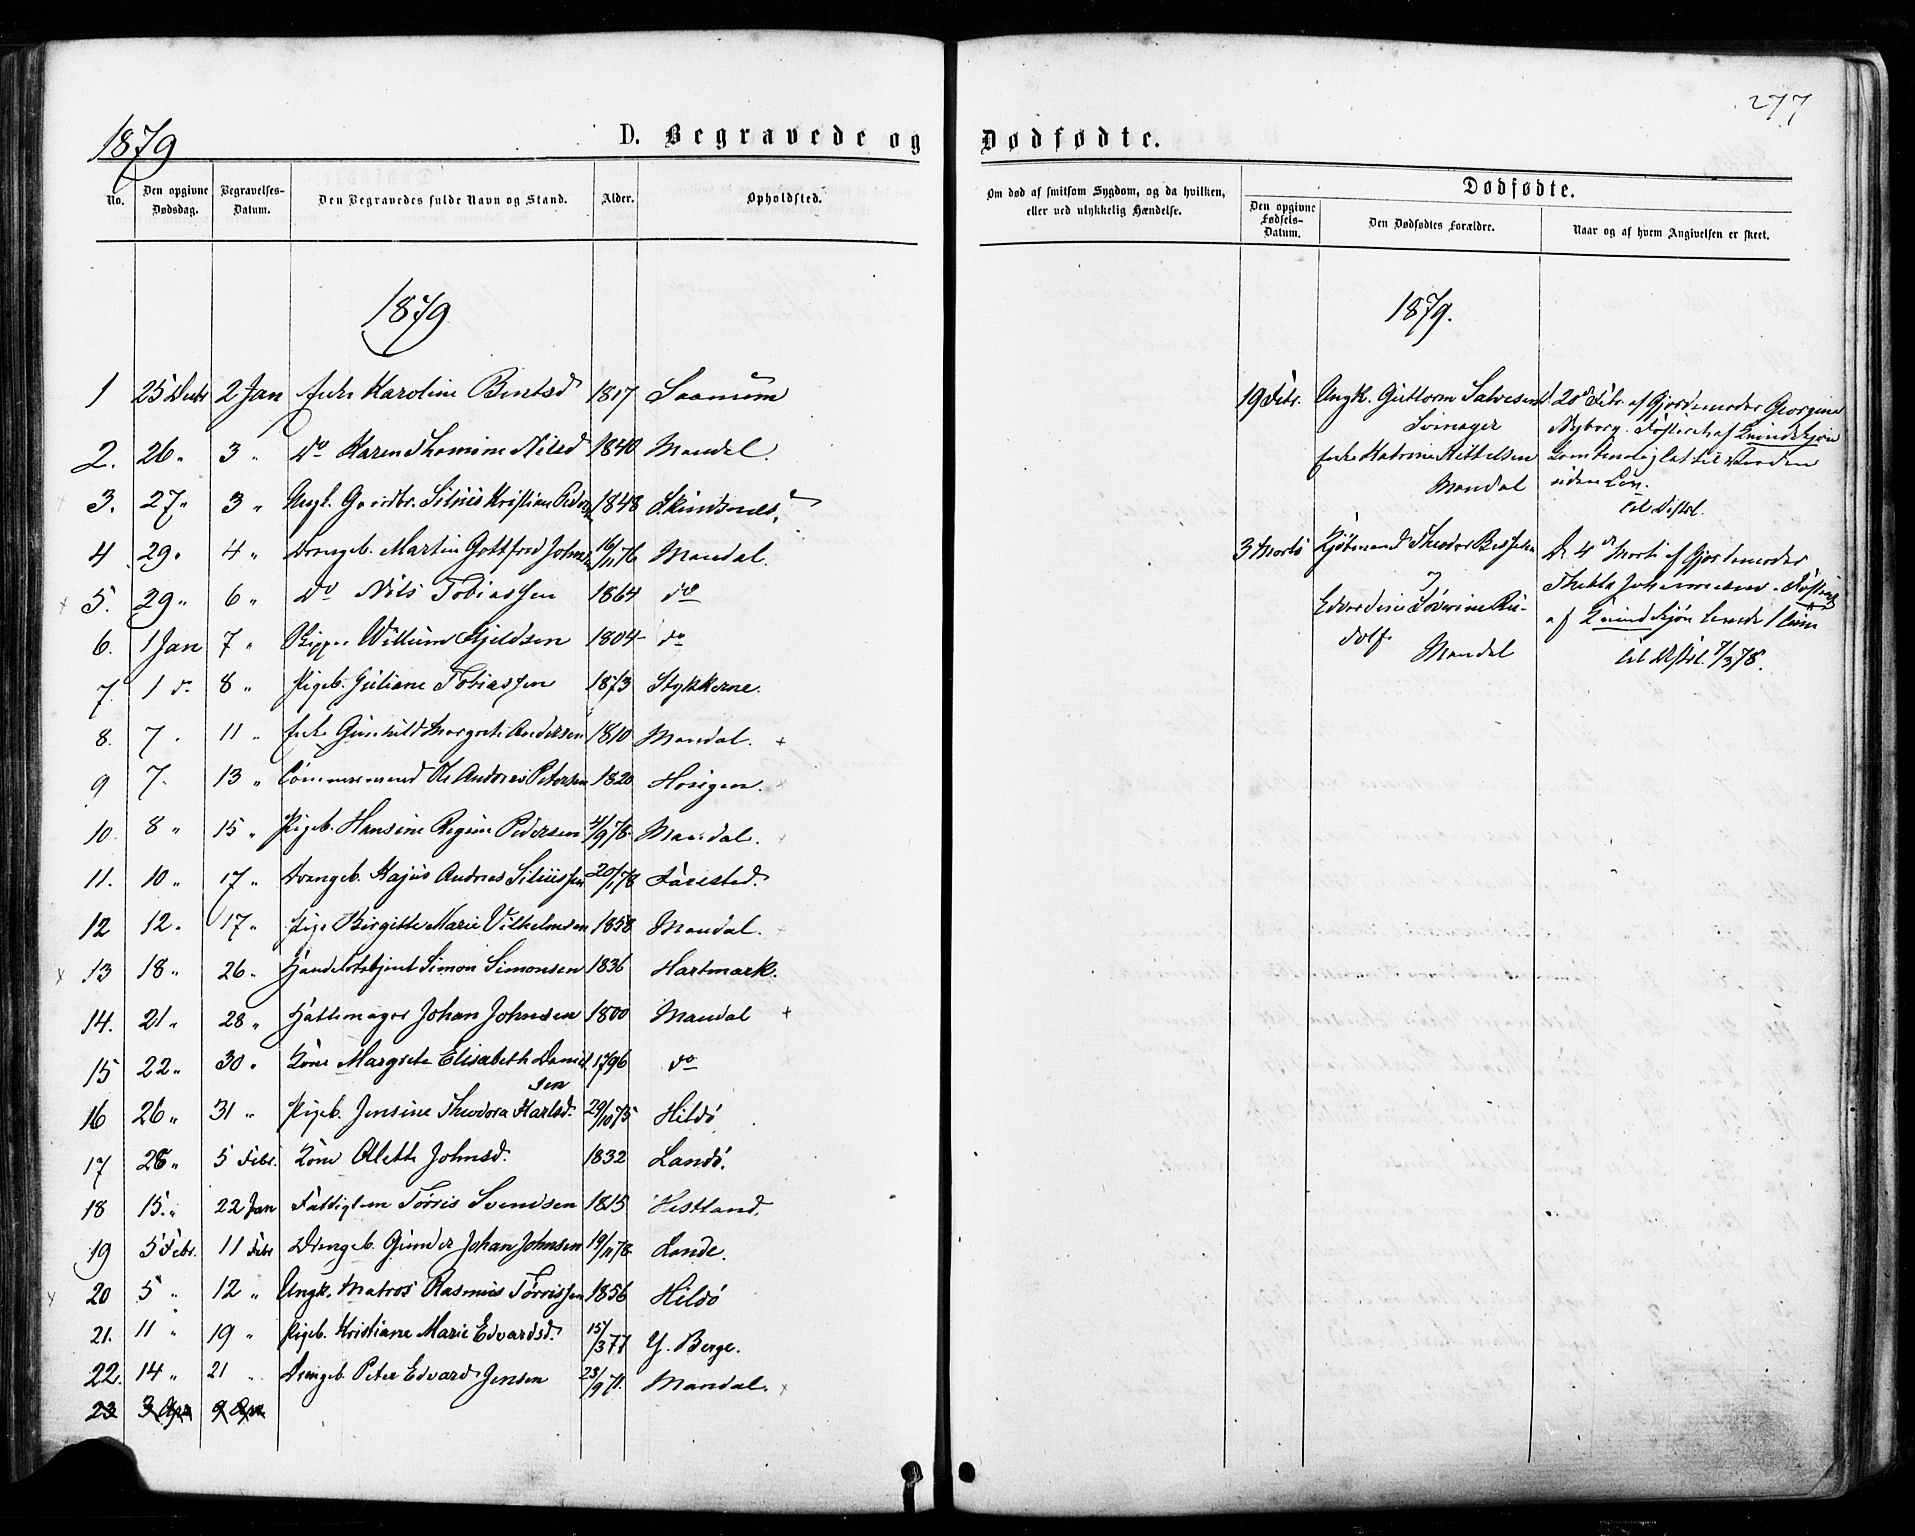 277
1879
D. Begravede og Dødfødte.
No.
Den opgivne Dødsdag.
Begravelses-Datum.
Den Begravedes fulde Navn og Stand.
Alder.
Opholdsted.
Om død af smitsom Sygdom, og da hvilken, eller ved ulykkelig Hændelse.
Dødfødte.
Den opgivne Fødsels-Datum.
Den Dødfødtes Forældre.
Naar og af hvem Angivelsen er skeet.
1879
1 25 Decbr 2 Jan Enke Karoline Berntsd 1817 Saanum
2. 26 " 3 " Do Karen Thomine Nilsd 1840 Mandal.
3. 27 " 3 " Ungk. Gaardbr. Silius Kristian 1848 Skindsnes.
4 29 " 4 " Drengeb. Martin Gottfred 16/11 76 Mandal.
5. 29 " 6 " Do Nils Tobiassen 1864 do
6. 1 Jan 7 " Skipper Willum Gjeldsen 1804 do
7. 1 d 8 " Pigeb. Juliane Tobiassen 1873 Stykkerne.
8. 7 . 11 " Enke Gunhild Margrete Andersen 1810 Mandal. +
9 7. 13 " Tømmermand Ole Andreas Petersen 1820
10. 8 " 15 " Pigeb. Hansine Regine Pedersen 4/9 78 Mandal.
11. 10 " 17 " Drengeb. Kajus Andreas Siliussen 20/1 78
12 12 " 17 " Pige Birgitte Marie Vilhelmsen 1858 Mandal.
13 18 " 26 " Handelsbetjent Simon Simonsen 1836 Hartmark.
14. 21 " 28 " Hattemager Johan Johnsen 1800 Mandal +
15 22 " 30 " Kone Margrete Elisabeth Daniel 1796 do
sen
16 26 " 31 " Pigeb. Jensine Theodora Karlsd. 29/10 75 Hildø
17 28 " 5 Febr. Kone Alette Johnsd. 1832 Landø.
18 15. " 22 Jan Fattiglem Tørris Svendsen 1815 Hestland.
19 5 Febr. 11 Febr Drengeb. Gunder Johan Johnsen 19/11 78 Lande.
20 5 " 12 " Ungk. Matros Rasmus Tørrissen 1856 Hildø
21. 11 " 19 " Pigeb. Kristiane Marie Edvardsd. 15/3 77 Y. Berge.
22. 14 " 21 " Drengeb. Peter Edvard Jensen 23/9 71. Mandal.
23 3 Apr 9 Apr
1879.
19 Febr. Ungk. Guttorm Salvesen D. 20de Febr. af Gjordemoder Georgine
Svinager Nyborg. Fosteret af Quindekjøn
Enke Katrine Kittelsen
Mandal uden Lev.
til Distrl.
3 Marts Kjøbmand Theodor D. 4de Marts af Gjordemoder
Thekla Johannesen. Fosteret
Edvardine Severine Ru-
af Quindekjøn
dolf.
Mandal til Distrl. 7/3 78.